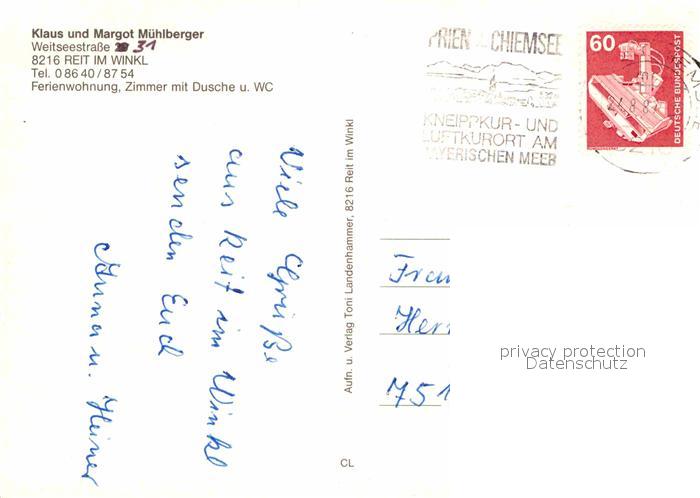 Klaus und Margot Mühlberger
Weitseestraße 31
8216 REIT IM WINKL
Tel. 0 86 40 / 87 54
Ferienwohnung, Zimmer mit Dusche u. WC
PRIEN CHIEMSEE
KNEIPPKUR- UND
LUFTKURORT AM
BAYERISCHEN MEER
60
DEUTSCHE BUNDESPOST
Viele Grüße
aus Reit im Winkl
senden Euch
Anna u. Heiner
Aufn. u. Verlag Toni Landenhammer, 8216 Reit im Winkl
CL
Frau
Herr
751
privacy protection
Datenschutz